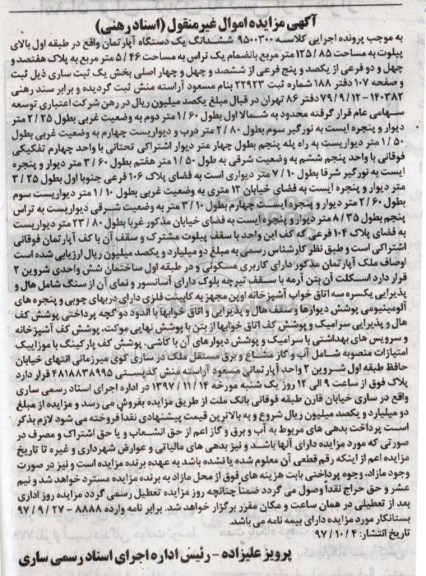 آگهی مزایده اموال غیرمنقول (اسناد رهنی)
به موجب پرونده اجرایی کلاسه ۹۵۰۰۳۰۰ ششدانگ یک دستگاه آپارتمان واقع در طبقه اول بالای
پیلوت به مساحت ۱۳۵/۸۵ متر مربع بانضمام یک تراس به مساحت ۵/۴۶ متر مربع به پلاک هفتصد و
چهل و دو فرعی از یکصد و پنج فرعی از ششصد و چهل و چهار اصلی بخش یک ثبت ساری ذیل ثبت
و صفحه ۱۰۷ دفتر ۱۸۸ شماره ثبت ۲۲۹۲۳ بنام مسعود آراسته منش ثبت گردیده و برابر سند رهنی
۱۴۰۳۸۲ - ۷۹/۹/۱۲ دفتر ۸۶ تهران در قبال مبلغ یکصد میلیون ریال در رهن شرکت اعتباری توسعه
سهامی عام قرار گرفته محدود به شمالا اول بطول ۱/۶۰ متر دوم به وضعیت غربی بطول ۲/۲۵ متر
دیوار و پنجره ایست به نورگیر سوم بطول ۲/۸۰ متر درب و دیواریست چهارم به وضعیت غربی بطول
۱/۵۰ متر دیواریست به راه پله پنجم بطول چهار متر دیوار اشتراکی تحتانی با واحد چهارم تفکیکی
فوقانی با واحد پنجم ششم به وضعیت شرقی به طول ۱/۵۰ متر هفتم بطول ۳/۶۰ متر دیوار و پنجره
ایست به نورگیر شرقا بطول ۷/۱۰ متر دیواری است به فضای پلاک ۱۰۶ فرعی جنوبا اول بطول ۳/۲۵
متر دیوار و پنجره ایست به فضای خیابان ۱۲ متری به وضعیت غربی بطول ۱/۱۰ متر دیواریست سوم
بطول ۲/۶۰ متر دیوار و پنجره ایست چهارم بطول ۳/۱۰ متر به وضعیت شرقی دیواریست به تراس
پنجم بطول ۸/۳۵ متر دیوار و پنجره ایست به فضای خیابان مذکور غربا بطول ۲۳/۸۰ متر دیواریست
به فضای پلاک ۱۰۴ فرعی که کف این واحد با سقف پیلوت مشترک و سقف آن با کف آپارتمان فوقانی
اشتراکی است و طبق نظر کارشناس رسمی به مبلغ دو میلیارد و یکصد میلیون ریال ارزیابی شده است
اوصاف ملک آپارتمان مذکور دارای کاربری مسکونی و در طبقه اول ساختمان شش واحدی شروین ۲
قرار دارد اسکلت آن بتن آرمه با سقف تیرچه بلوک دارای آسانسور و نمای آن از سنگ شامل هال و
پذیرایی یکسره سه اتاق خواب آشپزخانه اوپن مجهز به کابینت فلزی دارای دربهای چوبی و پنجره های
آلومینیومی پوشش دیوارها و سقف هال و پذیرایی و اتاق خوابها با اندود دو گچه پرداختی پوشش کف
هال و پذیرایی سرامیک و پوشش کف اتاق خوابها از بتن با پوشش نهایی موکت، پوشش کف آشپزخانه
و سرویس های بهداشتی با سرامیک و پوشش دیوارهای آن با کاشی، پوشش کف پارکینگ با موزاییک
امتیازات منصوبه شامل آب و گاز مشاع و برق مستقل ملک در ساری کوی میرزمانی انتهای خیابان
حافظ طبقه اول شروین ۲ واحد آپارتمانی مسعود آراسته منش کدپستی ۴۸۱۸۸۳۸۹۹۵ قرار دارد
پلاک فوق از ساعت ۹ الی ۱۲ روز یک شنبه مورخه ۱۳۹۷/۱۱/۱۴ در اداره اجرای اسناد رسمی ساری
واقع در ساری خیابان قارن طبقه فوقانی بانک ملت از طریق مزایده بفروش می رسد و مزایده از مبلغ
دو میلیارد و یکصد میلیون ریال شروع و به بالاترین قیمت پیشنهادی نقدا فروخته می شود لازم بذکر
است پرداخت بدهی های مربوط به آب و برق و گاز اعم از حق انشعاب و یا حق اشتراک و مصرف در
صورتی که مورد مزایده دارای آنها باشد و نیز بدهی های مالیاتی و عوارض شهرداری و غیره تا تاریخ
مزایده اعم از اینکه رقم قطعی آن معلوم شده یا نشده باشد به عهده برنده مزایده است و نیز در صورت
وجود مازاد، وجوه پرداختی بابت هزینه های فوق از محل مازاد به برنده مزایده مسترد خواهد شد و نیم
عشر و حق حراج نقدا وصول می گردد ضمنا چنانچه روز مزایده تعطیل رسمی گردد مزایده روز اداری
بعد از تعطیلی در همان ساعت و مکان مقرر برگزار خواهد شد. برابر نامه وارده ۸۸۸۸ - ۹۷/۹/۲۷
بستانکار مورد مزایده دارای بیمه نامه می باشد.
تاریخ انتشار: ۹۷/۱۰/۴
پرویز علیزاده - رئیس اداره اجرای اسناد رسمی ساری